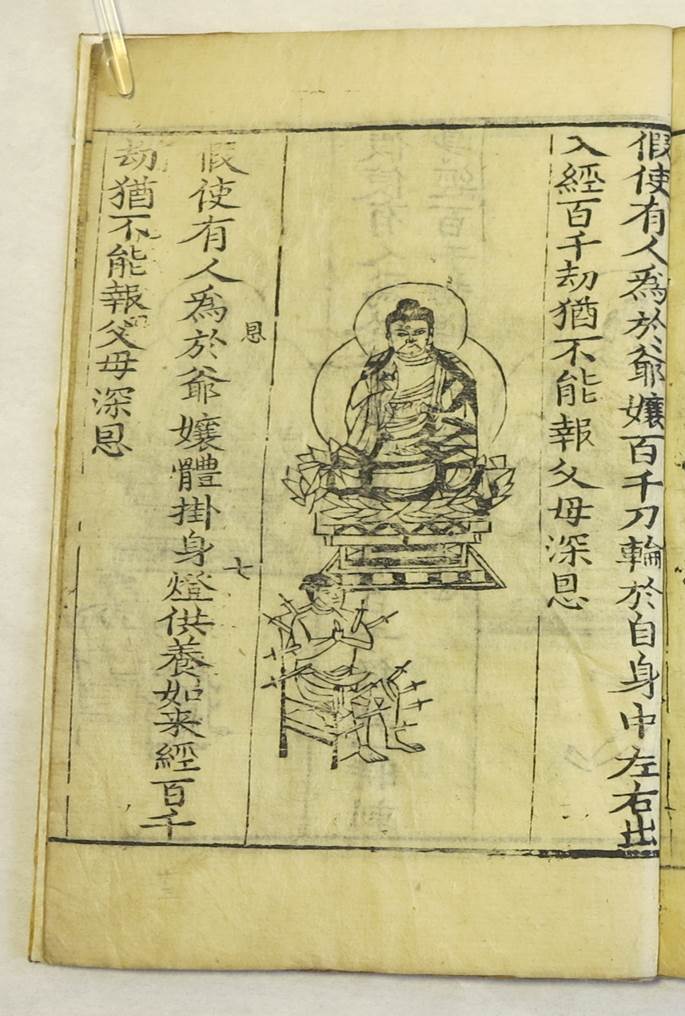 假使有人為於爺孃百千刀輪於自身中左右出
入經百千劫猶不能報父母深恩
恩
七
假使有人為於爺孃體掛身燈供養如来經百千
劫猶不能報父母深恩